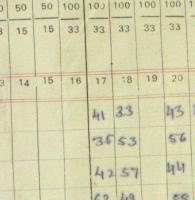 50 50 100 100 100 100 100
15 15 33 33 33 33 33
14 15 16 17 18 19 20
41 33 43
35 53 56
42 57 44